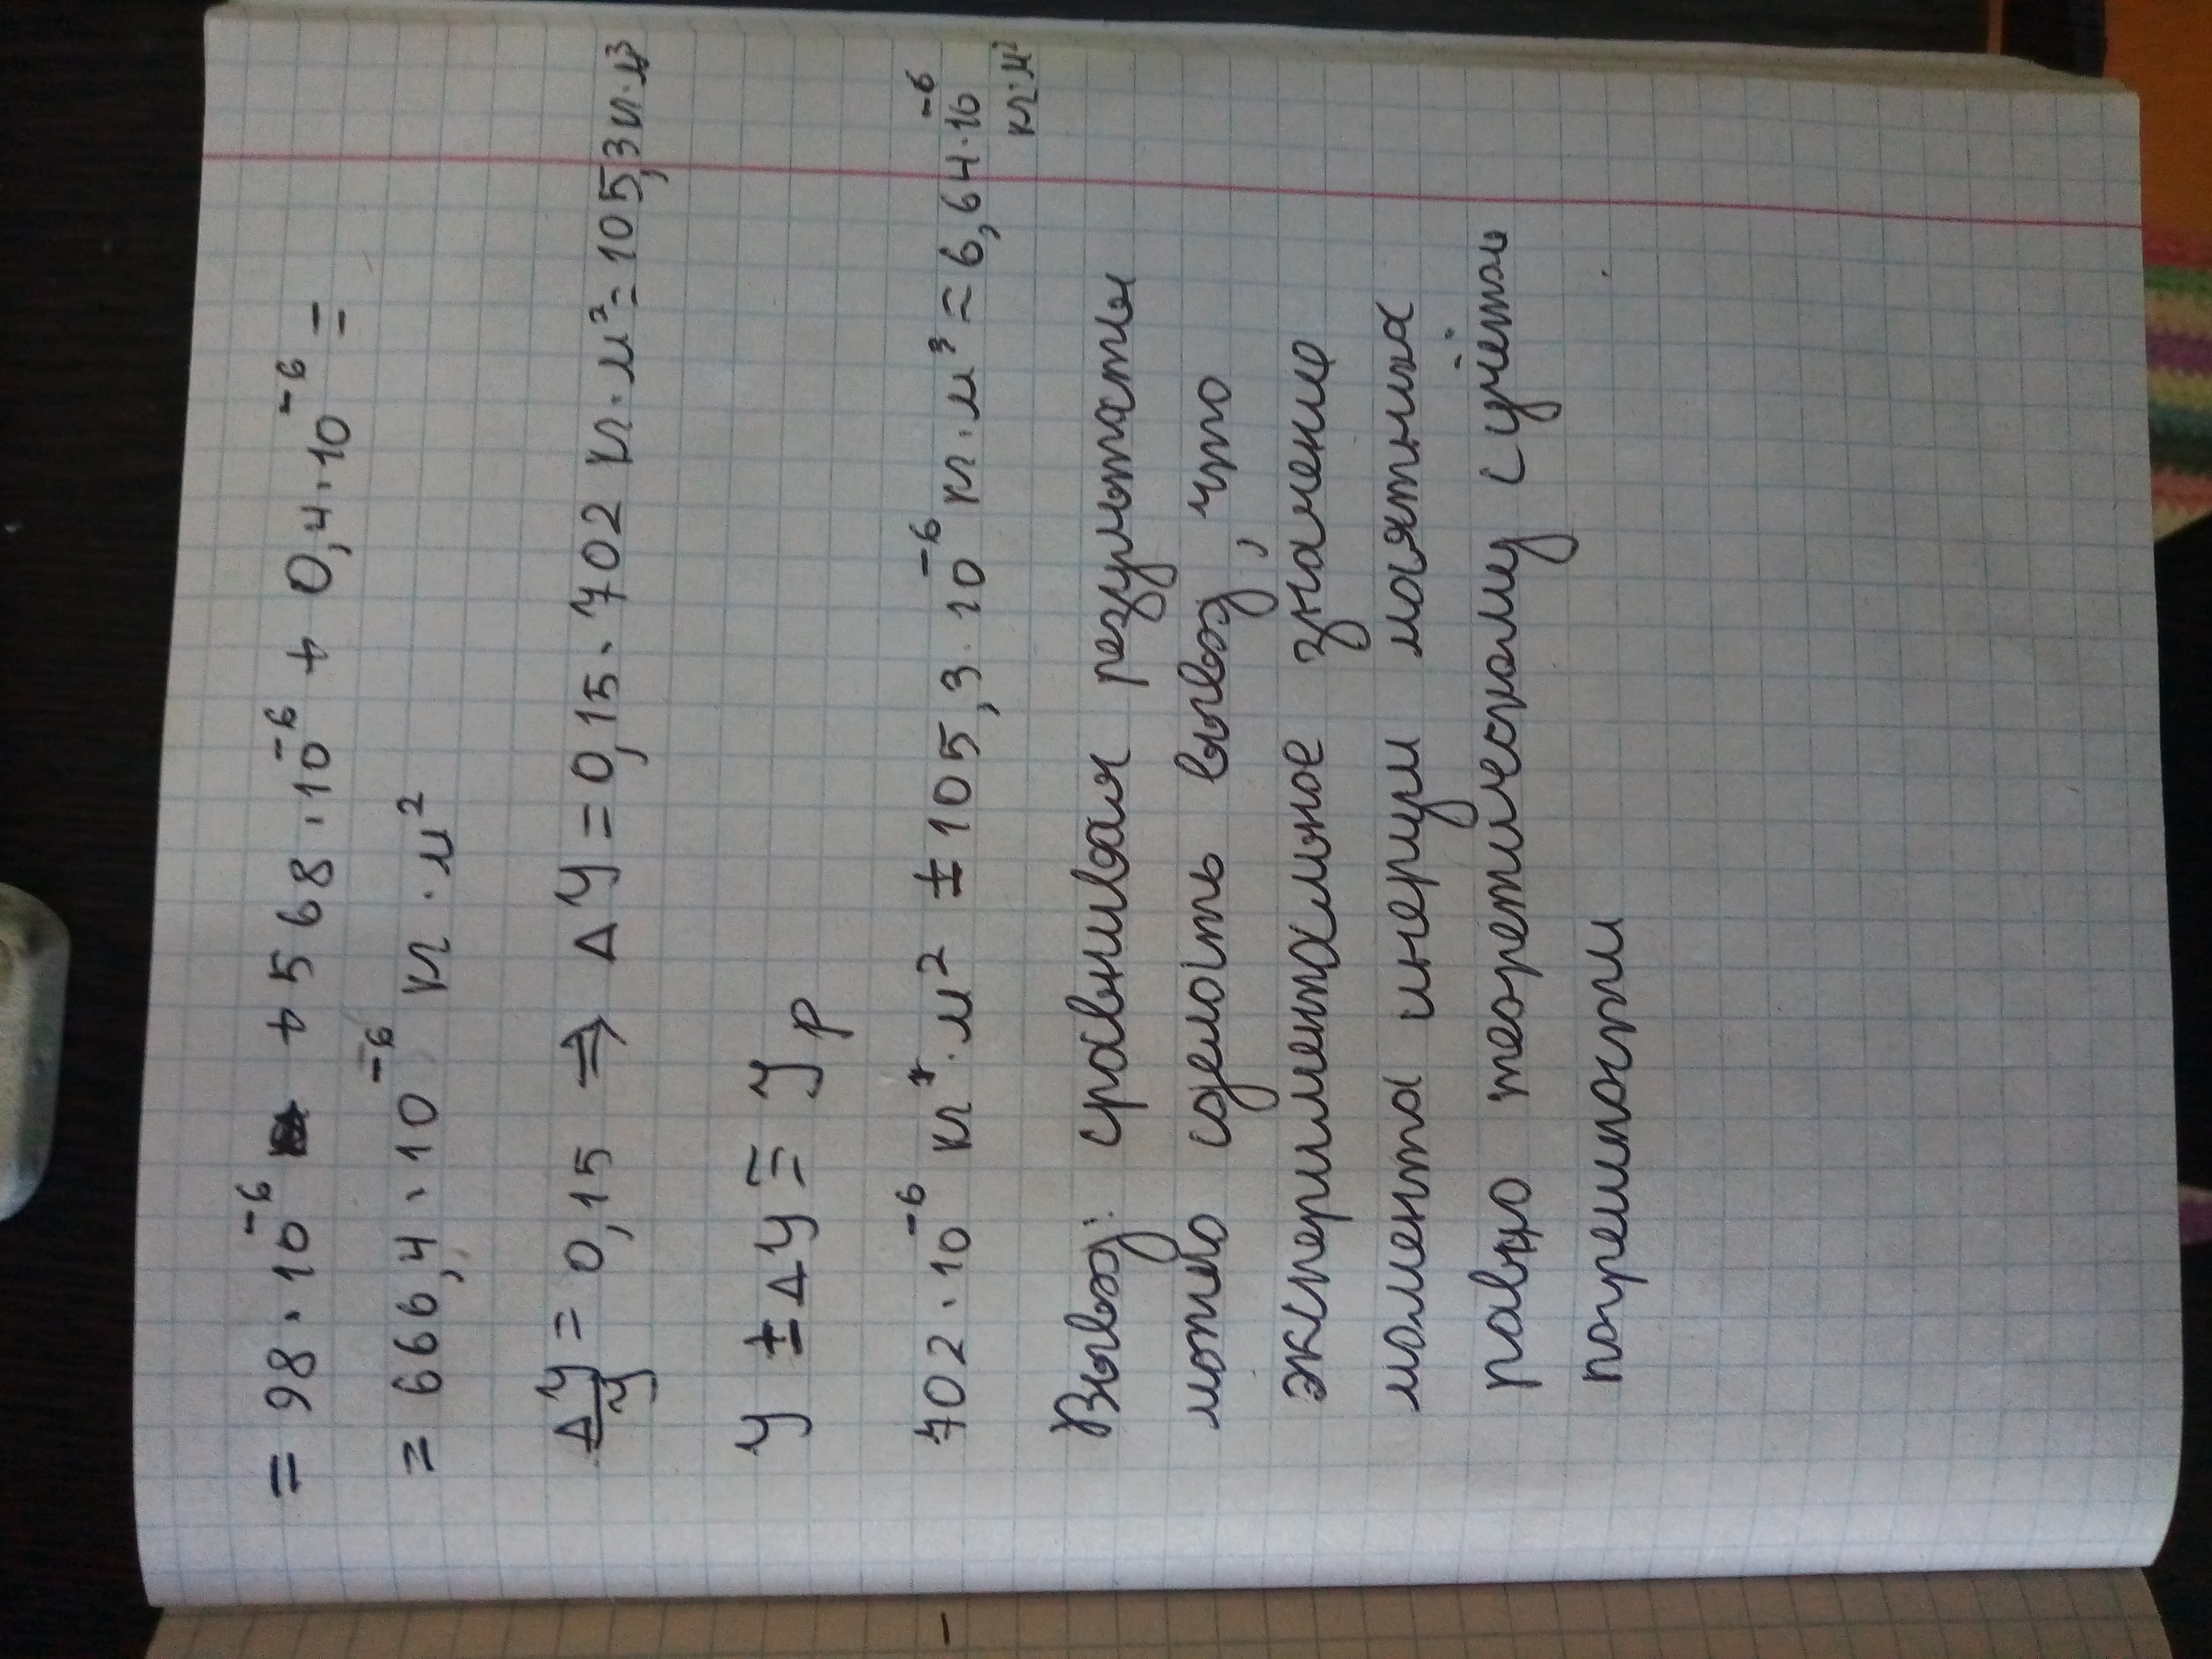 = 98 · 10⁻⁶ + 568 · 10⁻⁶ + 0,4 · 10⁻⁶ =
= 666,4 · 10⁻⁶ кг · м²
ΔY/Y = 0,15 ⇒ ΔY = 0,15 · 702 кг · м² = 105,3 кг · м³
Y ± ΔY ≅ Yр
702 · 10⁻⁶ кг · м² ± 105,3 · 10⁻⁶ кг · м³ = 6,64 · 10⁻⁶
кг · м²
Вывод: сравнивая результаты
можно сделать вывод, что
экспериментальное значение
момента инерции маятника
равно теоретическому с учётом
погрешности